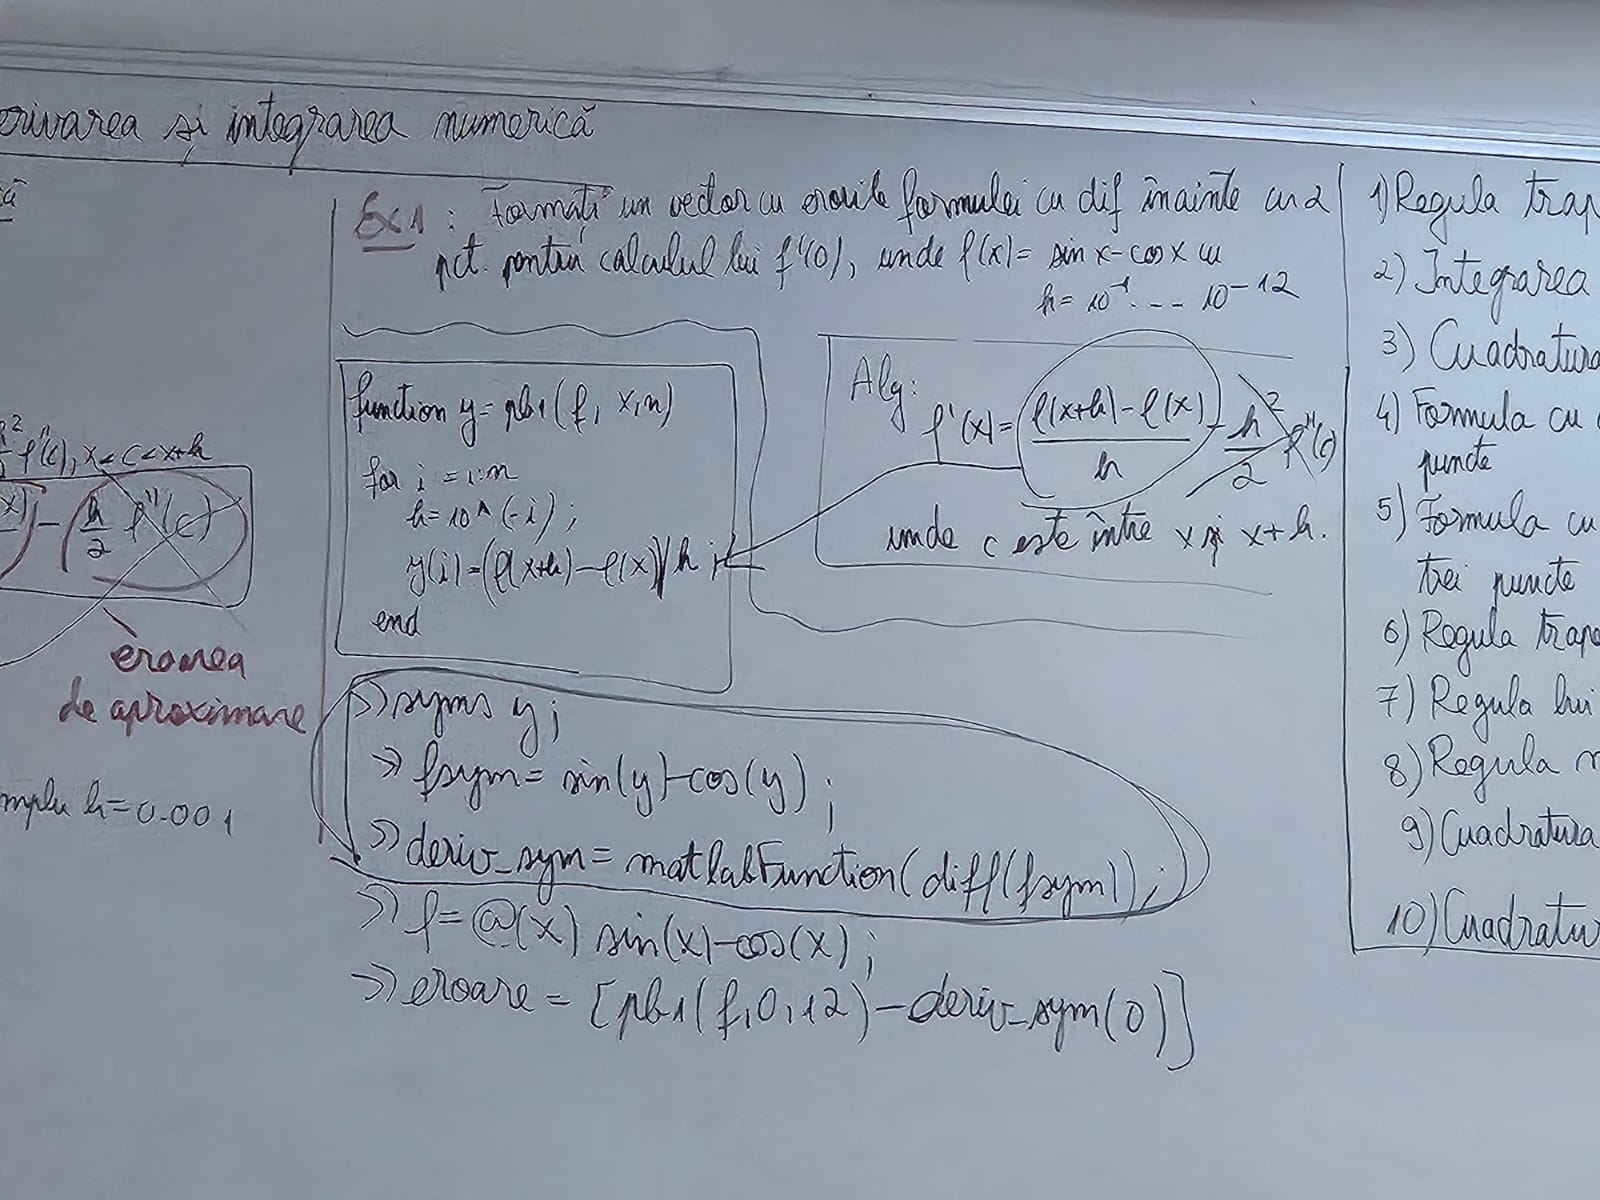 erivarea și integrarea numerică
Ex 1: Formați un vector cu erorile formulei cu dif înainte cu 2
pct. pentru calculul lui f'(0), unde f(x)= sin x-cos x cu
h= 10^-1 ... 10^-12
function y= pb1(f, x, n)
for i = 1:n
h=10^(-i);
y(i)=(f(x+h)-f(x))/h;
end
Alg:
f'(x)= (f(x+h)-f(x))/h - h^2/2 f''(c)
unde c este între x și x+h.
>> syms y;
>> fsym= sin(y)-cos(y);
>> deriv_sym= matlabFunction(diff(fsym));
>> f=@(x) sin(x)-cos(x);
>> eroare = [pb1(f,0,12)-deriv_sym(0)]
f''(c), x<c<x+h
x) - (h/2 f''(c))
eroarea
de aproximare
mplu h=0.001
1) Regula trap
2) Integrarea
3) Cuadratura
4) Formula cu
puncte
5) Formula cu
trei puncte
6) Regula trap
7) Regula lui
8) Regula
9) Cuadratura
10) Cuadratur